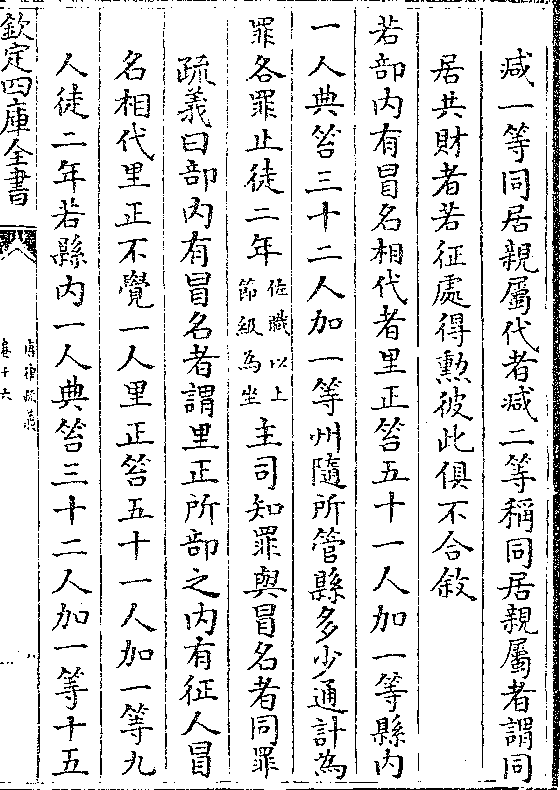 减一等同居親屬代者减二等稱同居親屬者謂同
居共財者若征處得勲彼此俱不合敘
若部内有冒名相代者里正笞五十一人加一等縣内
一人典笞三十二人加一等州隨所管縣多少通計為
罪各罪止徒二年佐職以上節級為坐主司知罪與冒名者同罪
疏義曰部内有冒名者謂里正所部之内有征人冒
名相代里正不覺一人里正笞五十一人加一等九
人徒二年若縣内一人典笞三十二人加一等十五
欽定四庫全書
唐律疏義
卷十六